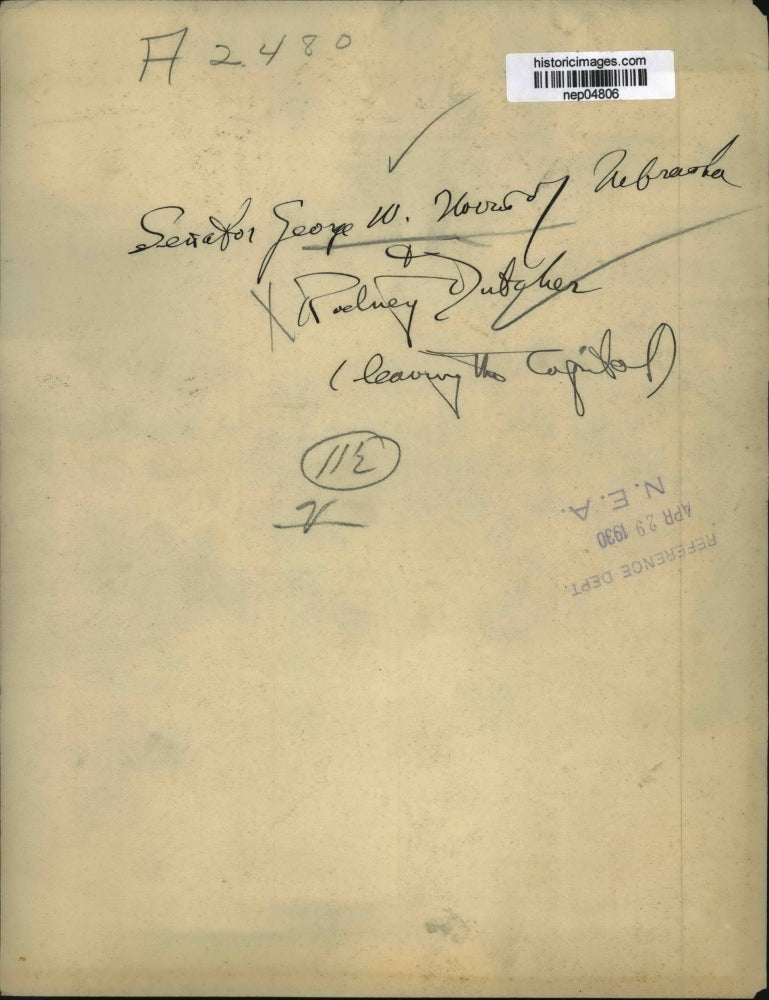 A 2480
historicimages.com
nep04806
Senator George W. Norris of Nebraska
&
X Rodney Dutcher
(leaving the Capitol)
N.E.A.
APR 29 1930
REFERENCE DEPT.